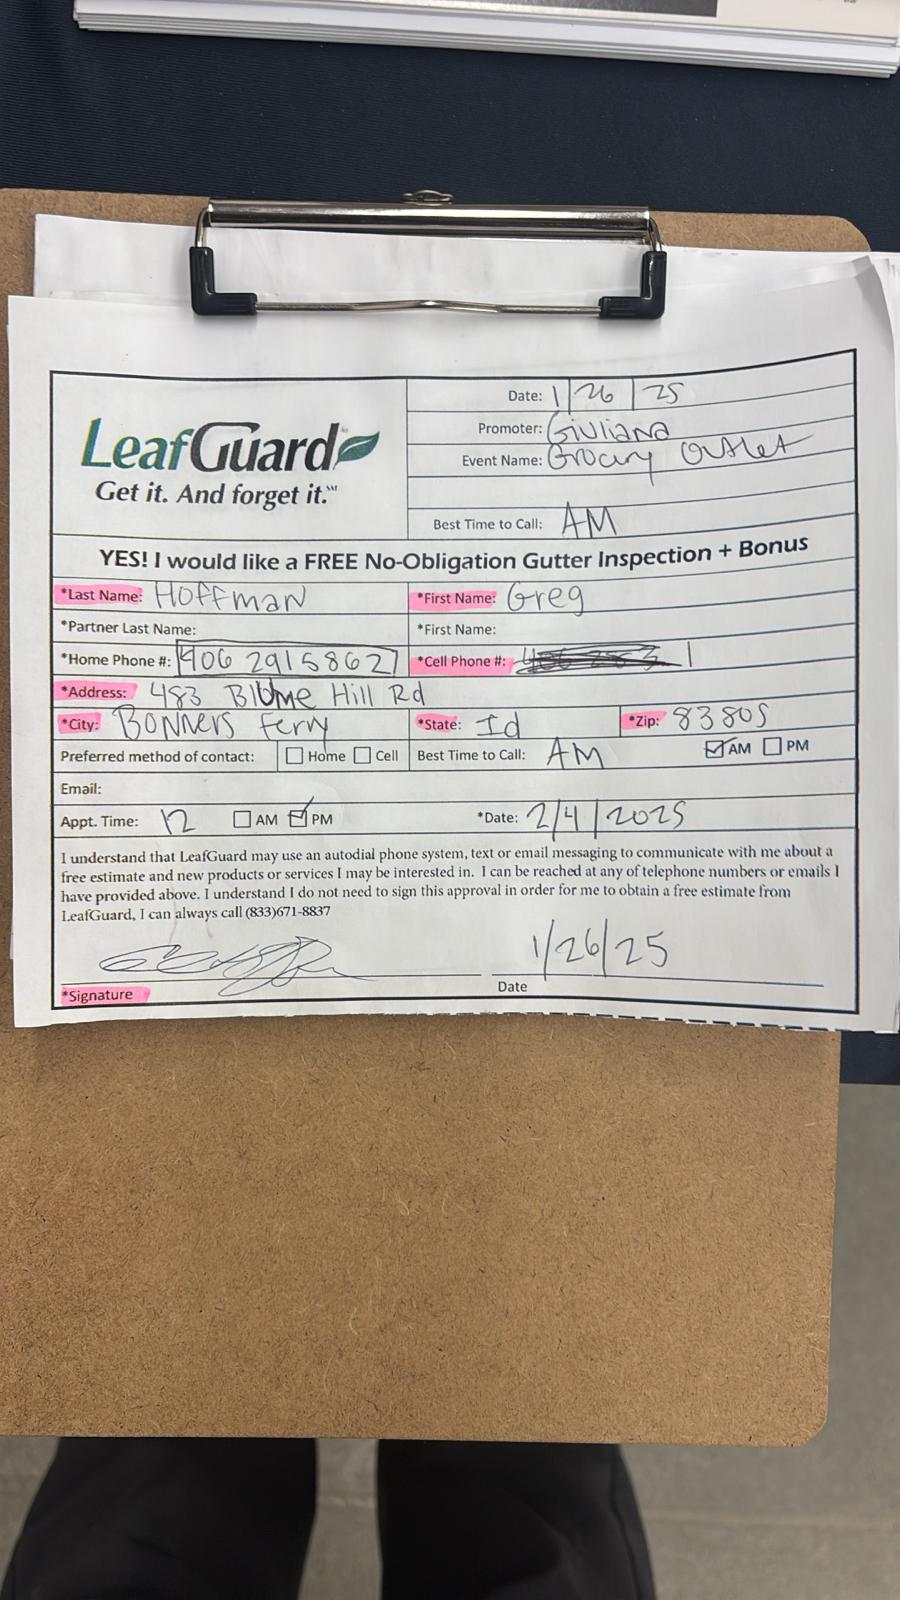 LeafGuard
Get it. And forget it.℠
Date: 1/26/25
Promoter: Giuliana
Event Name: Grocery Outlet
Best Time to Call: AM
YES! I would like a FREE No-Obligation Gutter Inspection + Bonus
*Last Name: Hoffman *First Name: Greg
*Partner Last Name: *First Name:
*Home Phone #: 406 2915862 *Cell Phone #:
*Address: 483 Blume Hill Rd
*City: Bonners Ferry *State: Id *Zip: 83805
Preferred method of contact: ☐ Home ☐ Cell Best Time to Call: AM ☑ AM ☐ PM
Email:
Appt. Time: 12 ☐ AM ☑ PM *Date: 2/4/2025
I understand that LeafGuard may use an autodial phone system, text or email messaging to communicate with me about a
free estimate and new products or services I may be interested in. I can be reached at any of telephone numbers or emails I
have provided above. I understand I do not need to sign this approval in order for me to obtain a free estimate from
LeafGuard, I can always call (833)671-8837
1/26/25
*Signature Date